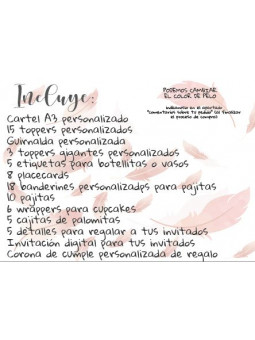 Incluye:
PODEMOS CAMBIAR
EL COLOR DE PELO
indícanoslo en el apartado
"comentarios sobre tu pedido" (al finalizar
el proceso de compra)
Cartel A3 personalizado
15 toppers personalizados
Guirnalda personalizada
3 toppers gigantes personalizados
5 etiquetas para botellitas o vasos
8 placecards
18 banderines personalizadps para pajitas
10 pajitas
6 wrappers para cupcakes
5 cajitas de palomitas
5 detalles para regalar a tus invitados
Invitación digital para tus invitados
Corona de cumple personalizada de regalo